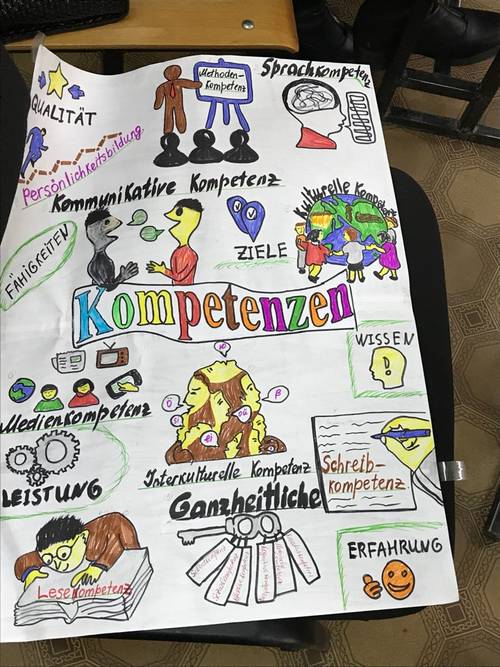 QUALITÄT
Methoden-
kompetenz
Sprachkompetenz
Persönlichkeitsbildung
Kommunikative Kompetenz
Kulturelle Kompetenz
FÄHIGKEITEN
ZIELE
Kompetenzen
WISSEN
Medienkompetenz
LEISTUNG
Interkulturelle Kompetenz
Schreib-
kompetenz
Ganzheitliche
Lesekompetenz
ERFAHRUNG